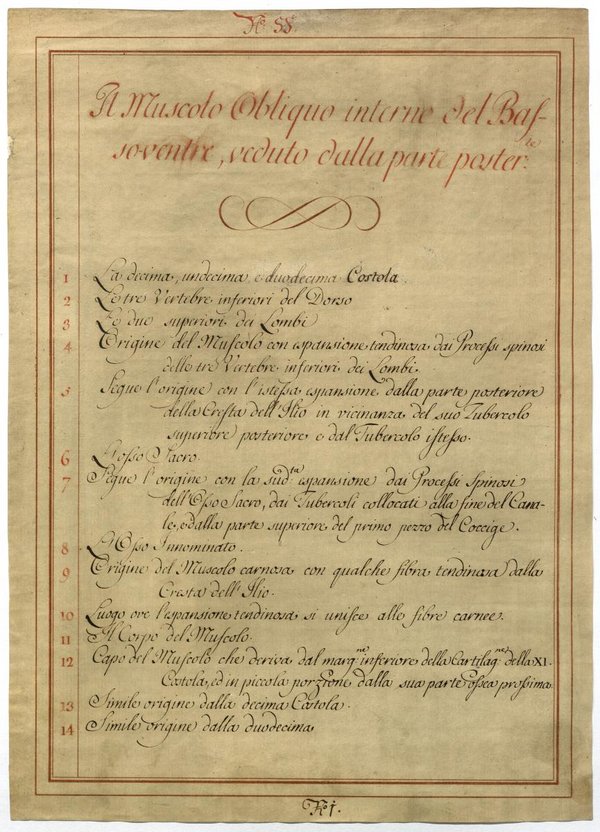 N.º 55.
Il Muscolo Obliquo interno del Bas-
soventre, veduto dalla parte poster.te
1 La decima, undecima e duodecima Costola
2 Le tre Vertebre inferiori del Dorso
3 Le due superiori dei Lombi
4 Origine del Muscolo con espansione tendinosa dai Processi spinosi
delle tre Vertebre inferiori dei Lombi.
5 Segue l'origine con l'istessa espansione dalla parte posteriore
della Cresta dell'Ilio in vicinanza del suo Tubercolo
superiore posteriore e dal Tubercolo istesso.
6 L'osso Sacro.
7 Segue l'origine con la sud.ta espansione dai Processi Spinosi
dell'Osso Sacro, dai Tubercoli collocati alla fine del Cana-
le, e dalla parte superiore del primo pezzo del Coccige.
8 L'Osso Innominato.
9 Origine del Muscolo carnosa con qualche fibra tendinosa dalla
Cresta dell'Ilio.
10 Luogo ove l'espansione tendinosa si unisce alle fibre carnee.
11 Il Corpo del Muscolo.
12 Capo del Muscolo che deriva dal marg.ne inferiore della Cartilag.ne della XI.
Costola, ed in piccola porzione dalla sua parte ossea prossima.
13 Simile origine dalla decima Costola.
14 Simile origine dalla duodecima
N.º 1.